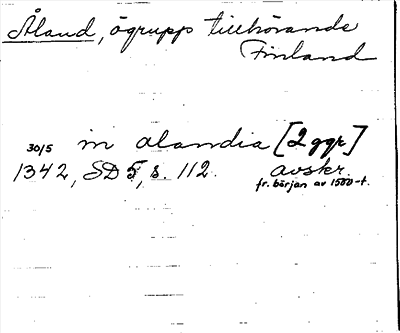 Åland, ögrupp tillhörande
Finland
in alandia [2 ggr]
30/5 1342, SD 5, s. 112. avskr.
fr. början av 1500-t.